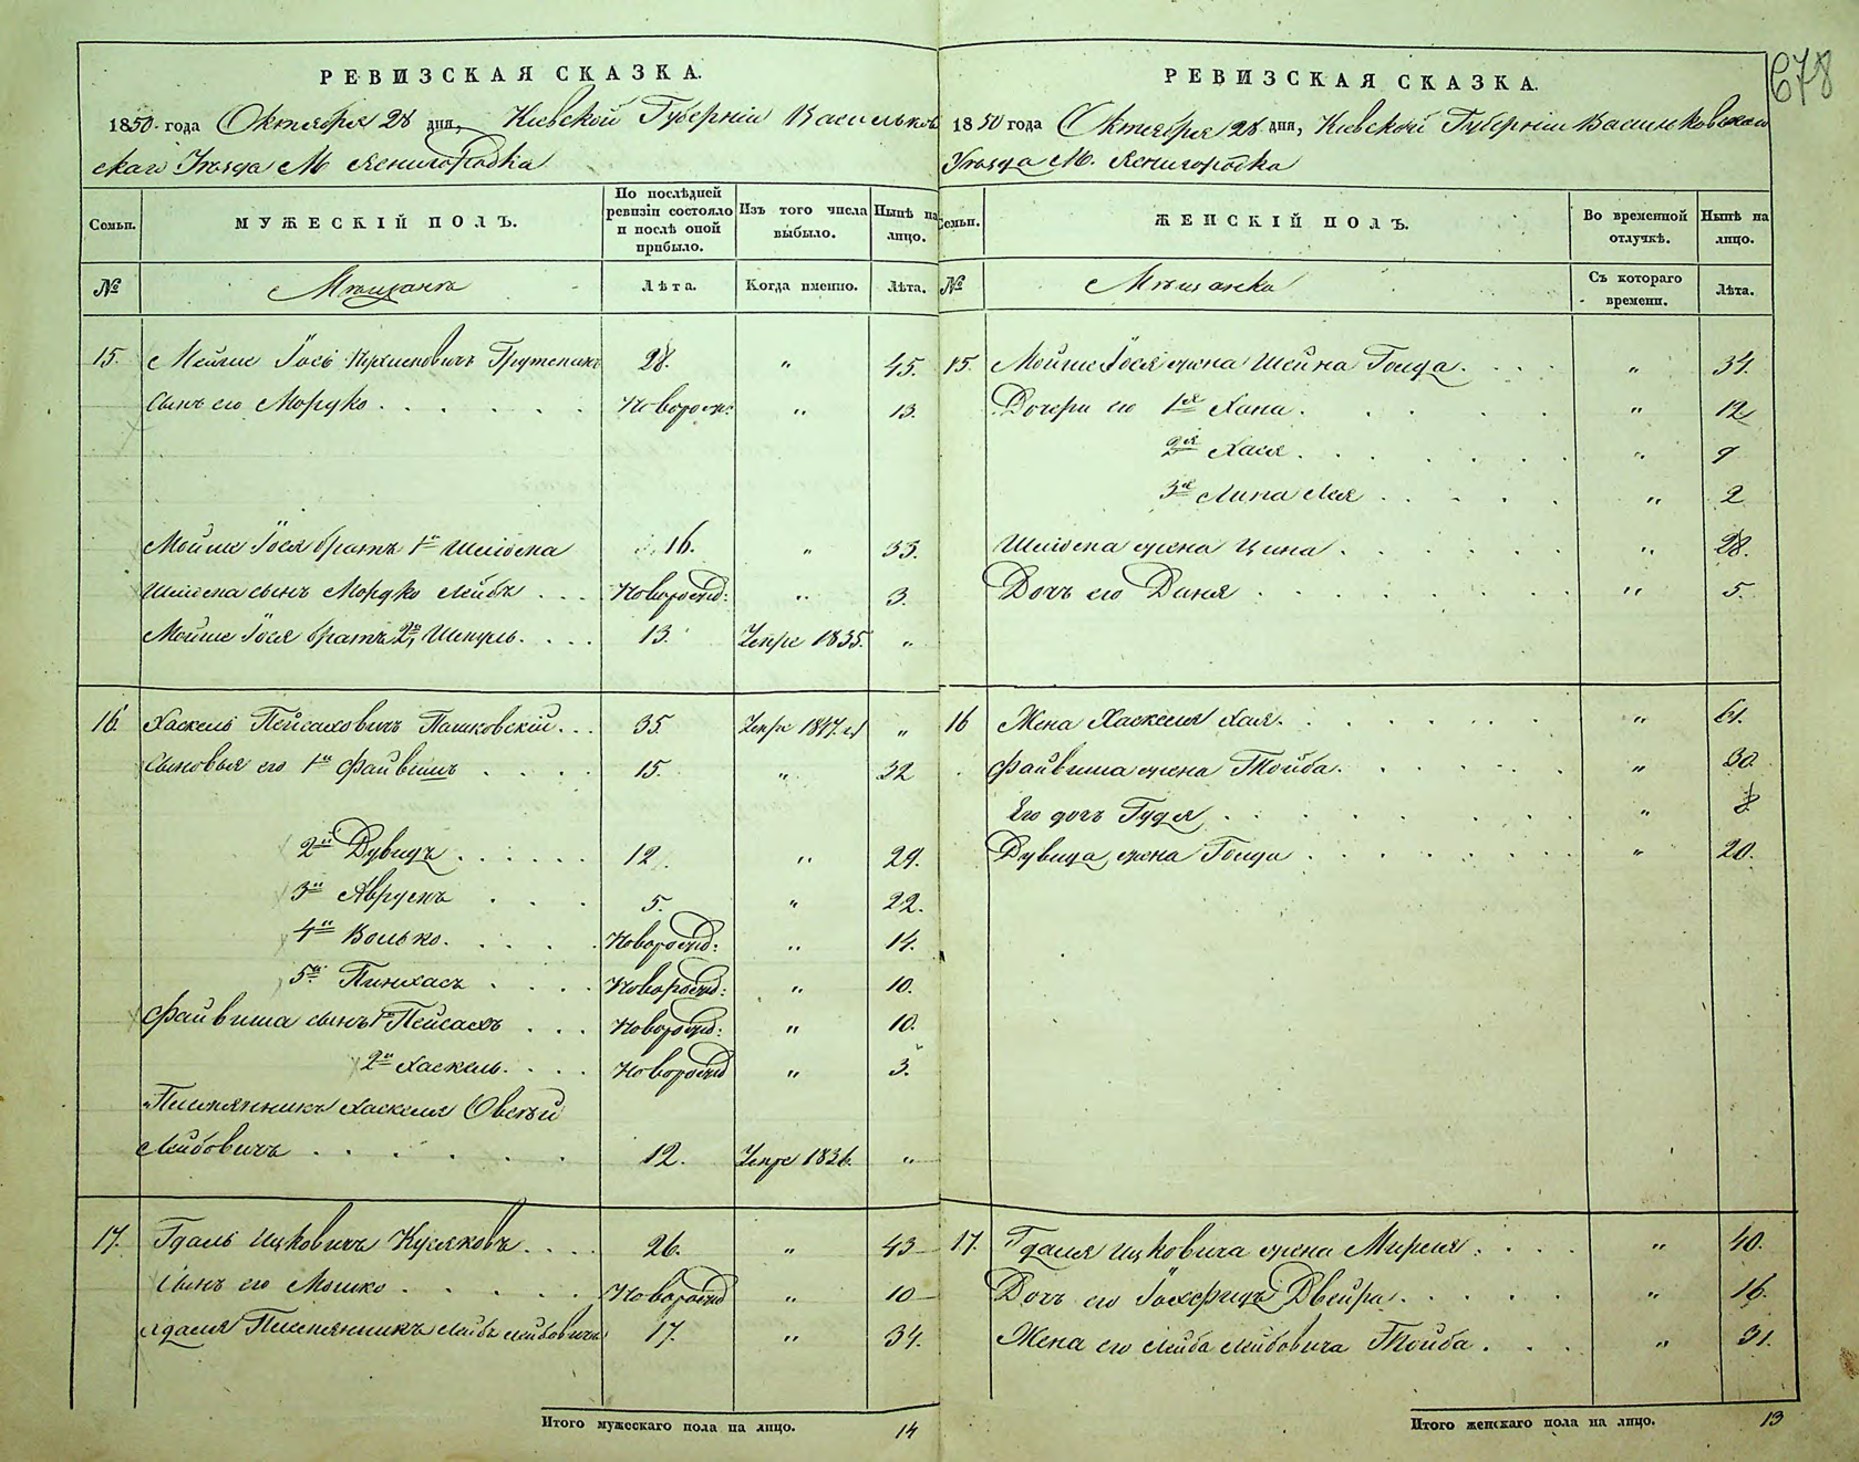 678
РЕВИЗСКАЯ СКАЗКА.
1850 года Октября 28 дня, Кіевской Губерніи Васильков
скаго Уѣзда М
Семьи. МУЖЕСКІЙ ПОЛЪ. По послѣдней ревизіи состояло и послѣ оной прибыло. Изъ того числа выбыло. Нынѣ на лицо.
№ Мѣщане Лѣта. Когда именно. Лѣта.
15. Мойше Іось 28. " 45.
Сынъ его Мордко . . . . . . Новорож: " 13.
Мойше Іося братъ 1й 16. " 33.
сынъ Мордко Лейбъ . . . Новорожд: " 3.
Мойше Іося братъ 2й, 13. Умре 1835. "
16. Хаскель Пейсаховичъ Пашковскій . . . 35. Умре 1847. "
Сыновья его 1й Файвишъ . . . . 15. " 32
2й Дувидъ . . . . . . 12. " 29.
3й Аврумъ . . . . 5. " 22.
4й Волько. . . . . Новорожд: " 14.
5й Пинхасъ . . . . Новорожд: " 10.
Файвиша сынъ 1й Пейсахъ . . . Новорожд: " 10.
2й Хаскель. . . . Новорожд " 3.
Племянникъ Хаскеля Овсѣй
Лейбовичъ . . . . . . 12. Умре 1836. "
17. Гдаль Ицковичъ . . . . 26. " 43
Сынъ его Мошко . . . . . Новорожд " 10
Гдаля Племянникъ Лейбъ Лейбовичъ 17. " 34.
Итого мужескаго пола на лицо. 14
РЕВИЗСКАЯ СКАЗКА.
1850 года Октября 28 дня, Кіевской Губерніи Васильковскаго
Уѣзда М.
Семьи. ЖЕНСКІЙ ПОЛЪ. Во временной отлучкѣ. Нынѣ на лицо.
№ Мѣщанки Съ котораго времени. Лѣта.
15. Мойше Іося жена Шейна Голда. . . . " 34.
Дочери его 1я Хана. . . . . " 12
2я Хася. . . . . . . "
3я Липа Лея . . . . . " 2
жена Цина . . . . . . " 28.
Дочь его Диня . . . . . . . . " 5.
16 Жена Хаскеля Хая. . . . . . . " 61.
Файвиша жена Тойба. . . . . . " 30.
Его дочь Гудя . . . . . . . . " 8
Дувида жена Голда . . . . . . . " 20.
17. Гдаля Ицковича жена Миреля . . . . " 40.
Дочь его Двейра . . . . . " 16.
Жена его Лейба Лейбовича Тойба . . . " 31.
Итого женскаго пола на лицо. 13